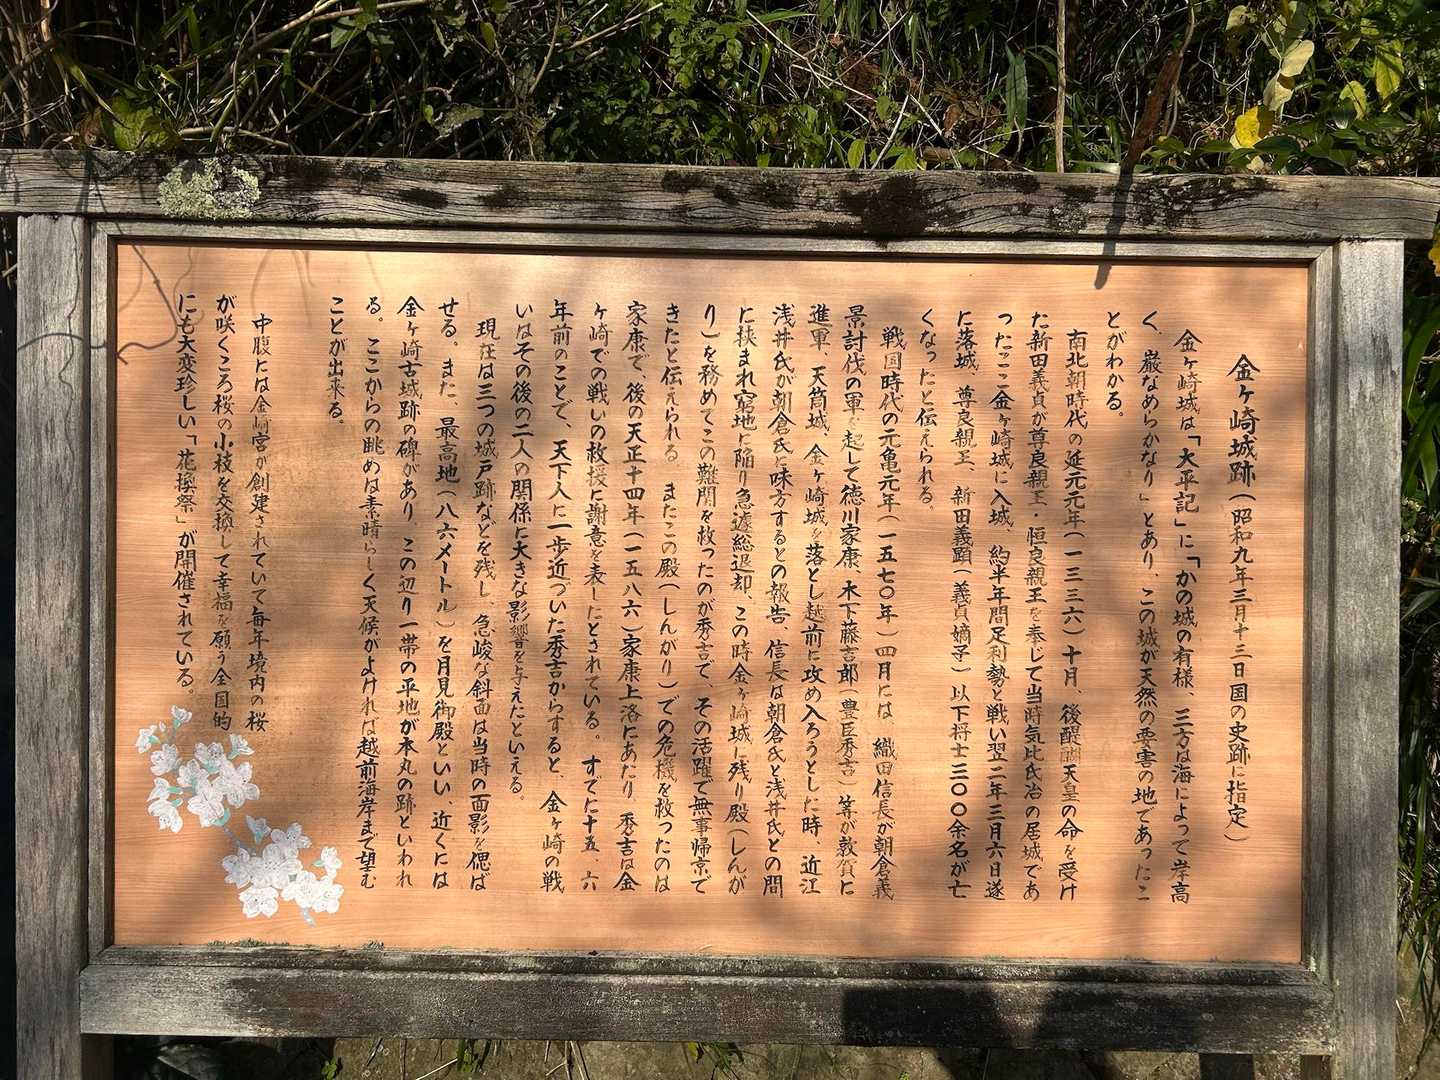 金ヶ崎城跡(昭和九年三月十三日国の史跡に指定)
金ヶ崎城は「太平記」に「かの城の有様、三方は海によって岸高
く、巌なめらかなり」とあり、この城が天然の要害の地であったこ
とがわかる。
南北朝時代の延元元年(一三三六)十月、後醍醐天皇の命を受け
た新田義貞が尊良親王、恒良親王を奉じて当時気比氏治の居城であ
ったここ金ヶ崎城に入城、約半年間足利勢と戦い翌二年三月六日遂
に落城、尊良親王、新田義顕(義貞嫡子)以下将士三〇〇余名が亡
くなったと伝えられる。
戦国時代の元亀元年(一五七〇年)四月には、織田信長が朝倉義
景討伐の軍を起して徳川家康、木下藤吉郎(豊臣秀吉)等が敦賀に
進軍、天筒城、金ヶ崎城を落とし越前に攻め入ろうとした時、近江
浅井氏が朝倉氏に味方するとの報告、信長は朝倉氏と浅井氏との間
に挟まれ窮地に陥り急遽総退却、この時金ヶ崎城に残り殿(しんが
り)を務めてこの難関を救ったのが秀吉で、その活躍で無事帰京で
きたと伝えられる。またこの殿(しんがり)での危機を救ったのは
家康で、後の天正十四年(一五八六)家康上洛にあたり、秀吉は金
ヶ崎での戦いの救援に謝意を表したとされている。すでに十五、六
年前のことで、天下人に一歩近づいた秀吉からすると、金ヶ崎の戦
いはその後の二人の関係に大きな影響を与えたといえる。
現在は三つの城戸跡などを残し、急峻な斜面は当時の面影を偲ば
せる。また、最高地(八六メートル)を月見御殿といい、近くには
金ヶ崎古城跡の碑があり、この辺り一帯の平地が本丸の跡といわれ
る。ここからの眺めは素晴らしく天候がよければ越前海岸まで望む
ことが出来る。
中腹には金崎宮が創建されていて毎年境内の桜
が咲くころ桜の小枝を交換して幸福を願う全国的
にも大変珍しい「花換祭」が開催されている。